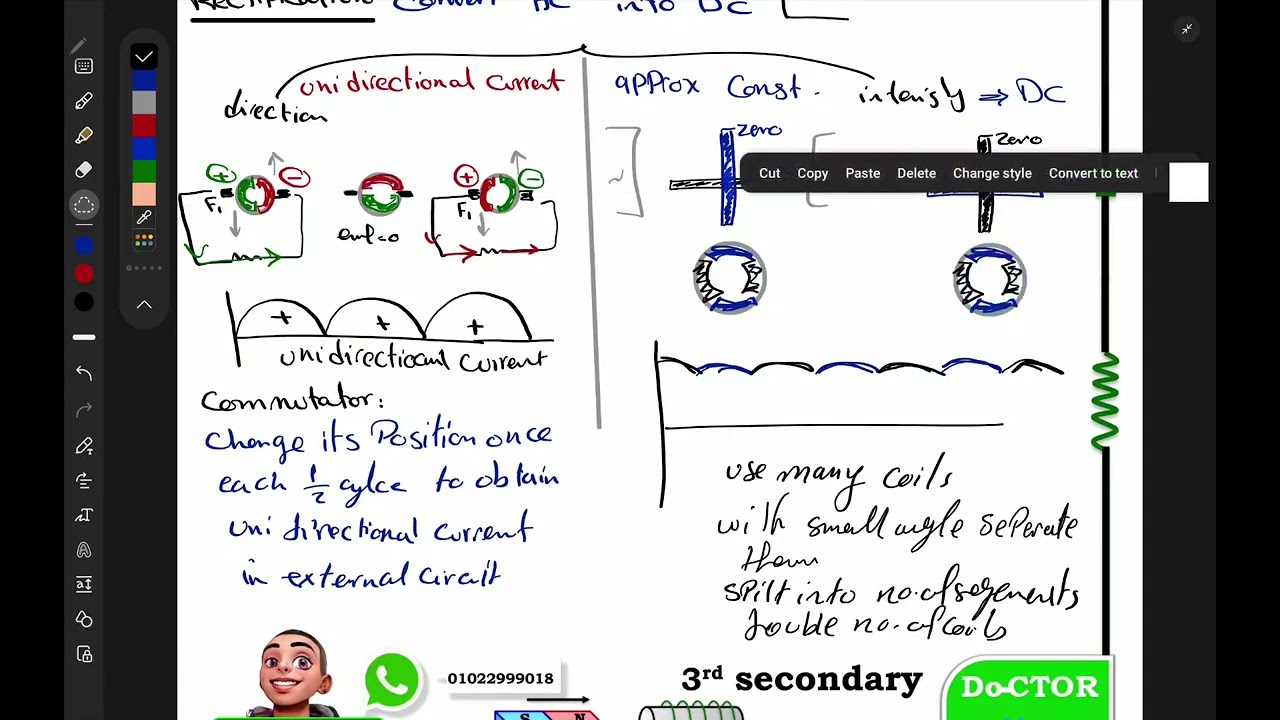 Rectification Convert AC into DC
unidirectional Current
direction
approx Const.
intensity ⇒ DC
Zero
Zero
Cut Copy Paste Delete Change style Convert to text
+ −
+ −
F1
emf=0
F1
+ + +
unidirectioanl Current
Commutator:
Change its Position once
each 1/2 cylce to obtain
uni directional current
in external Circuit
use many coils
with small angle seperate
them
spilt into no. of segements
double no. of coils
01022999018
3rd secondary
Do-CTOR
S N